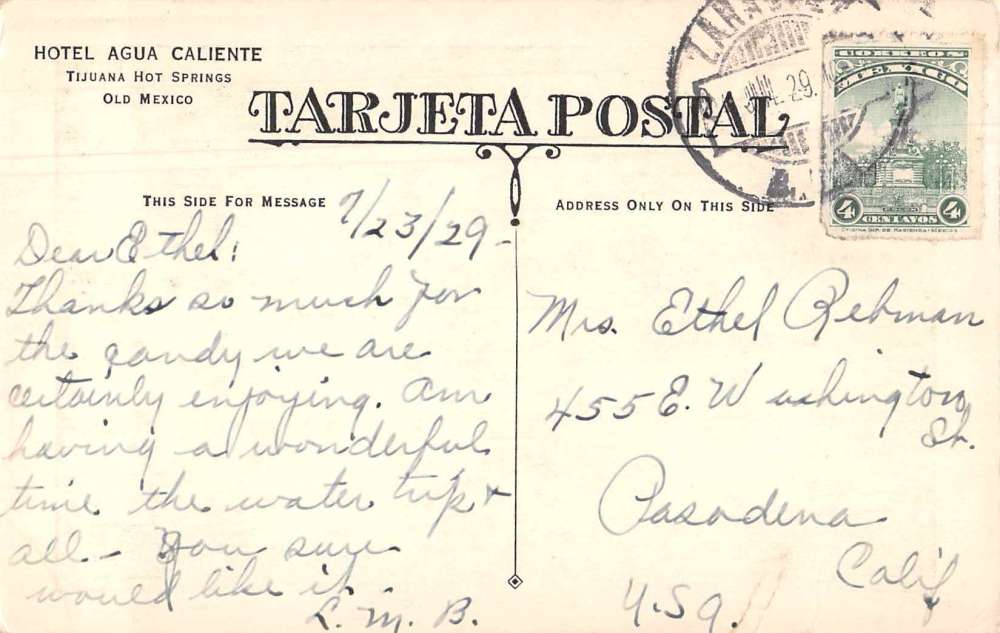 HOTEL AGUA CALIENTE
TIJUANA HOT SPRINGS
OLD MEXICO
TARJETA POSTAL
THIS SIDE FOR MESSAGE
7/23/29-
Dear Ethel:
Thanks so much for
the candy we are
certainly enjoying. Am
having a wonderful
time the water trip +
all - You sure
would like it.
L. M. B.
ADDRESS ONLY ON THIS SIDE
Mrs. Ethel Rebman
455 E. Washington
St.
Pasadena
Calif
U.S.A.
JUL. 29.
CORREOS
MEXICO
4 CENTAVOS 4
OFICINA IMP. DE HACIENDA-MEXICO